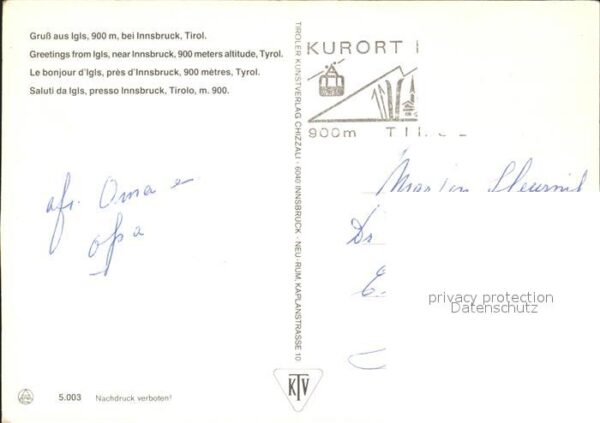 Gruß aus Igls, 900 m, bei Innsbruck, Tirol.
Greetings from Igls, near Innsbruck, 900 meters altitude, Tyrol.
Le bonjour d'Igls, près d'Innsbruck, 900 mètres, Tyrol.
Saluti da Igls, presso Innsbruck, Tirolo, m. 900.
Oma e
opa
TIROLER KUNSTVERLAG CHIZZALI · 6040 INNSBRUCK - NEU-RUM, KAPLANSTRASSE 10
KURORT I
900m
Martin
privacy protection
Datenschutz
KTV
5.003 Nachdruck verboten!